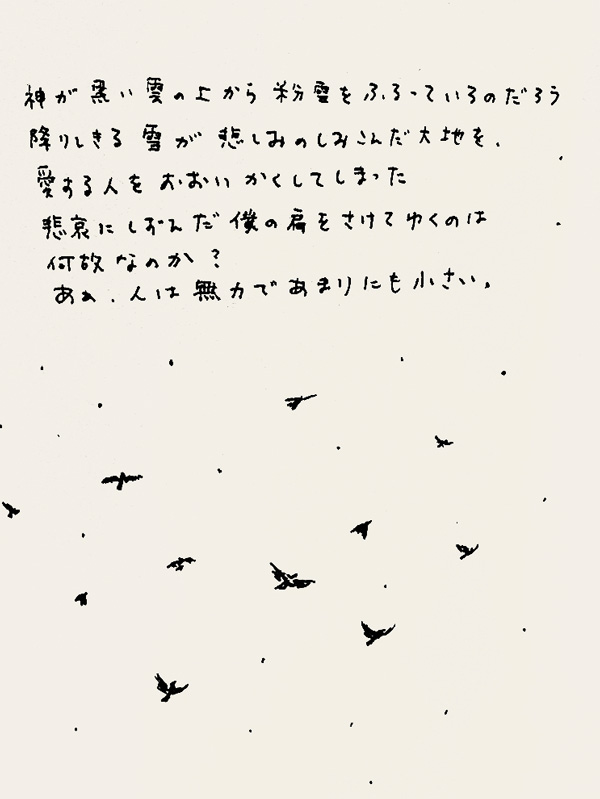 神が黒い雲の上から粉雪をふるっているのだろう
降りしきる雪が悲しみのしみこんだ大地を、
愛する人をおおいかくしてしまった
悲哀にしずんだ僕の肩をさけてゆくのは
何故なのか?
あぁ、人は無力であまりにも小さい。